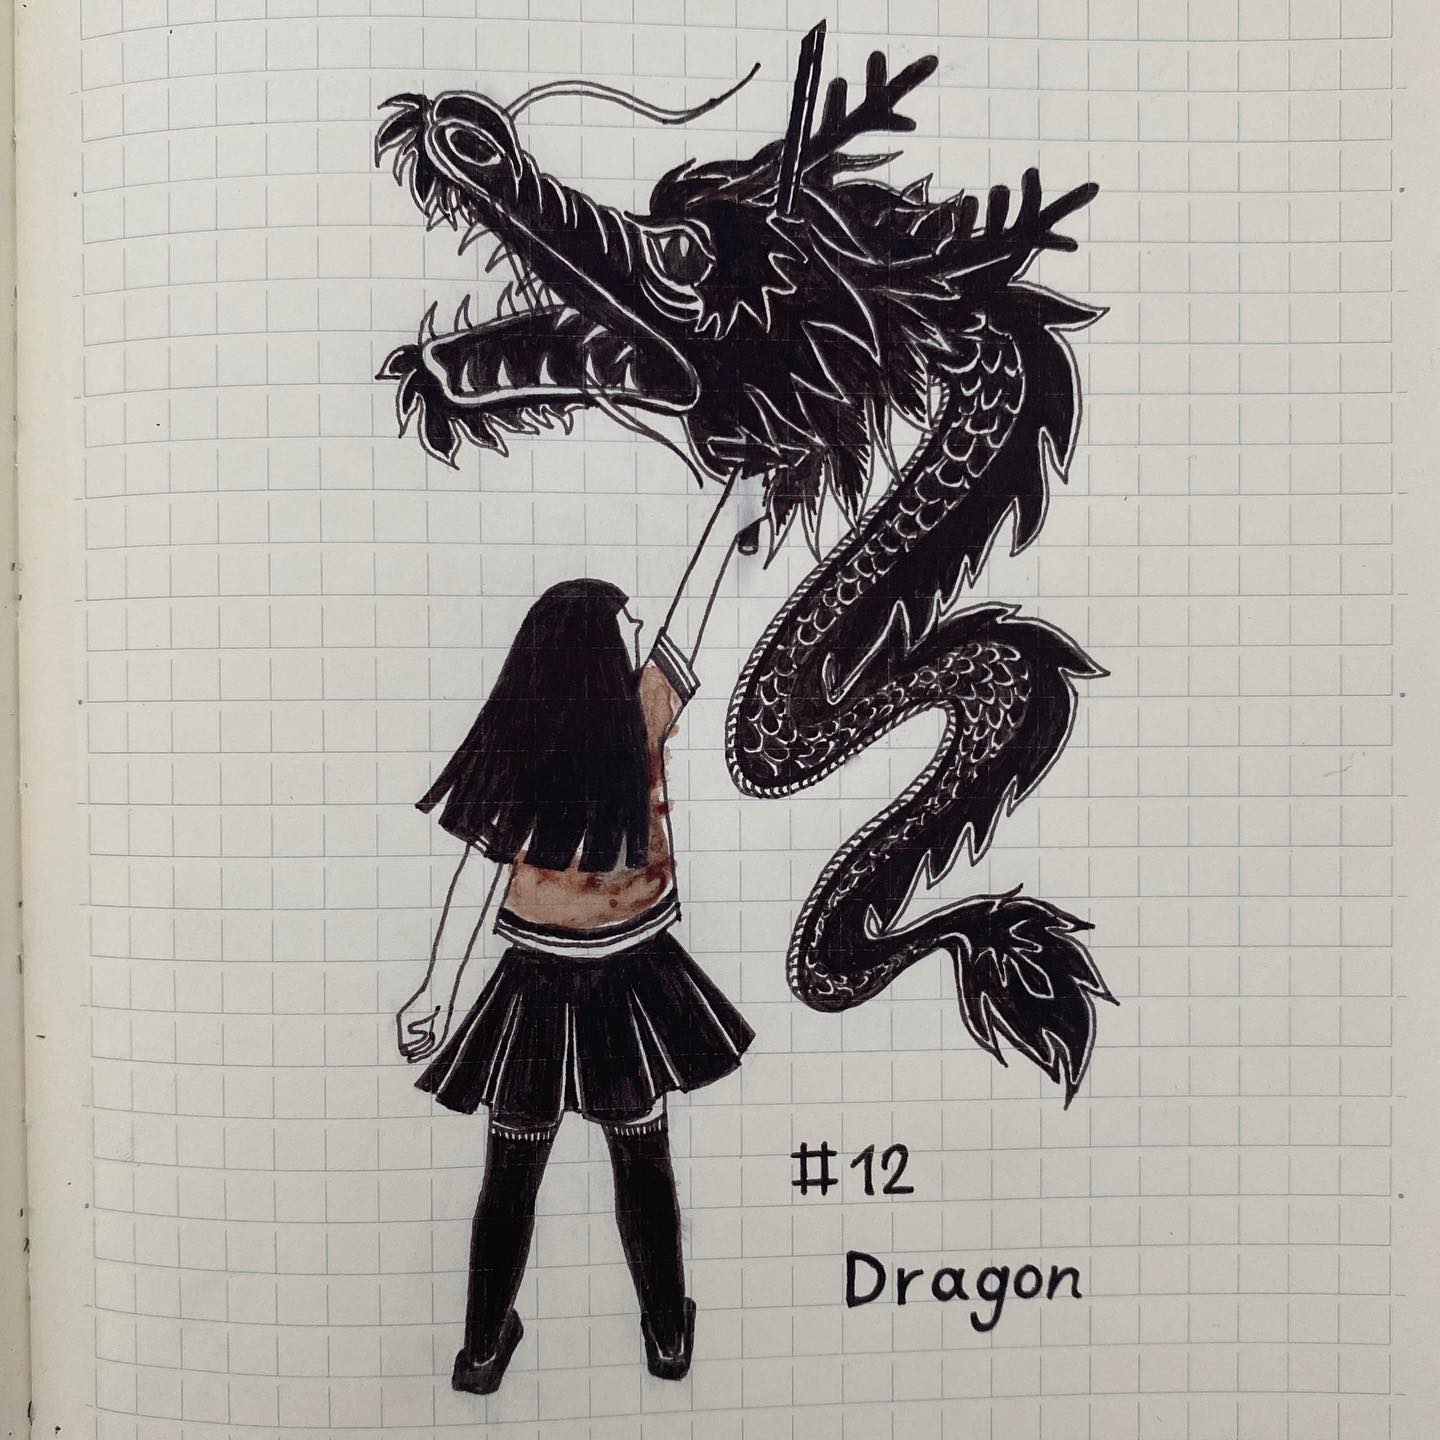 #12
Dragon